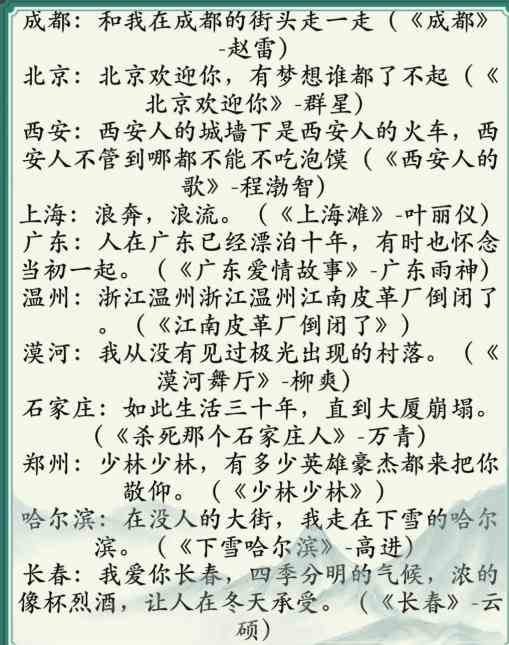 成都：和我在成都的街头走一走（《成都》
-赵雷）
北京：北京欢迎你，有梦想谁都了不起（《
北京欢迎你》-群星）
西安：西安人的城墙下是西安人的火车，西
安人不管到哪都不能不吃泡馍（《西安人的
歌》-程渤智）
上海：浪奔，浪流。（《上海滩》-叶丽仪）
广东：人在广东已经漂泊十年，有时也怀念
当初一起。（《广东爱情故事》-广东雨神）
温州：浙江温州浙江温州江南皮革厂倒闭了
。（《江南皮革厂倒闭了》）
漠河：我从没有见过极光出现的村落。（《
漠河舞厅》-柳爽）
石家庄：如此生活三十年，直到大厦崩塌。
（《杀死那个石家庄人》-万青）
郑州：少林少林，有多少英雄豪杰都来把你
敬仰。（《少林少林》）
哈尔滨：在没人的大街，我走在下雪的哈尔
滨。（《下雪哈尔滨》-高进）
长春：我爱你长春，四季分明的气候，浓的
像杯烈酒，让人在冬天承受。（《长春》-云
硕）